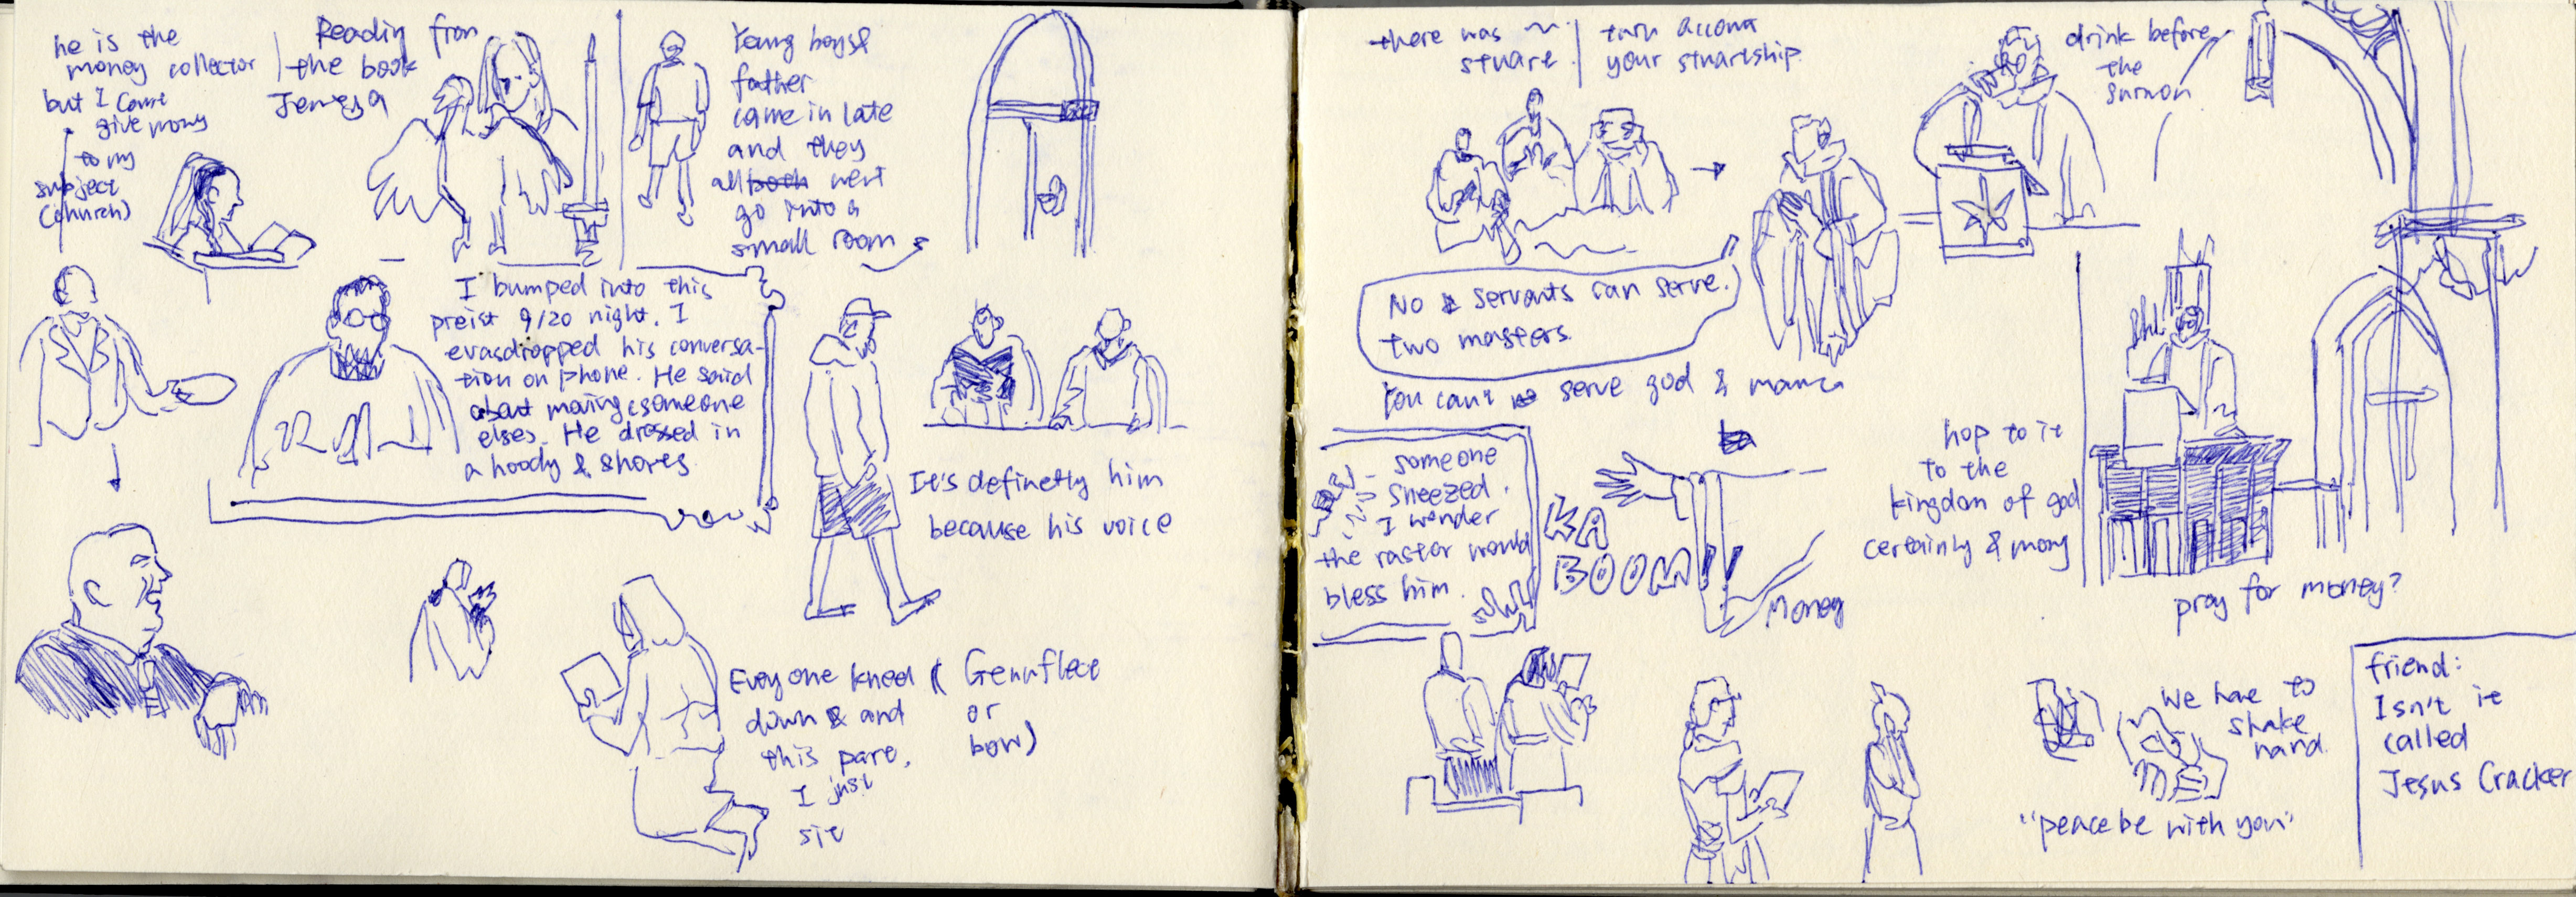 he is the
money collector
but I can't
give mony
to my
subject
(church)
Reading from
the book
Young boys &
father
came in late
and they
all both went
go into a
small room
I bumped into this
preist 9/20 night. I
evasdropped his conversa-
tion on phone. He said
about moving someone
elses. He dressed in
a hoody & shores
It's definetly him
because his voice
Everyone kneed
down & and
this part,
I just
sit
( Genuflect
or
bow)
there was ~
stuart
turn account
your stuartship.
drink before
the
surmon
No servants can serve.
two masters.
You can't serve god &
someone
sneezed.
I wonder
the pastor would
bless him.
KA
BOOM!!
Money
hop to it
to the
kingdom of god
certainly & mony
Bhl.
pray for money?
We have to
shake
hand
"peace be with you"
friend:
Isn't it
called
Jesus Cracker